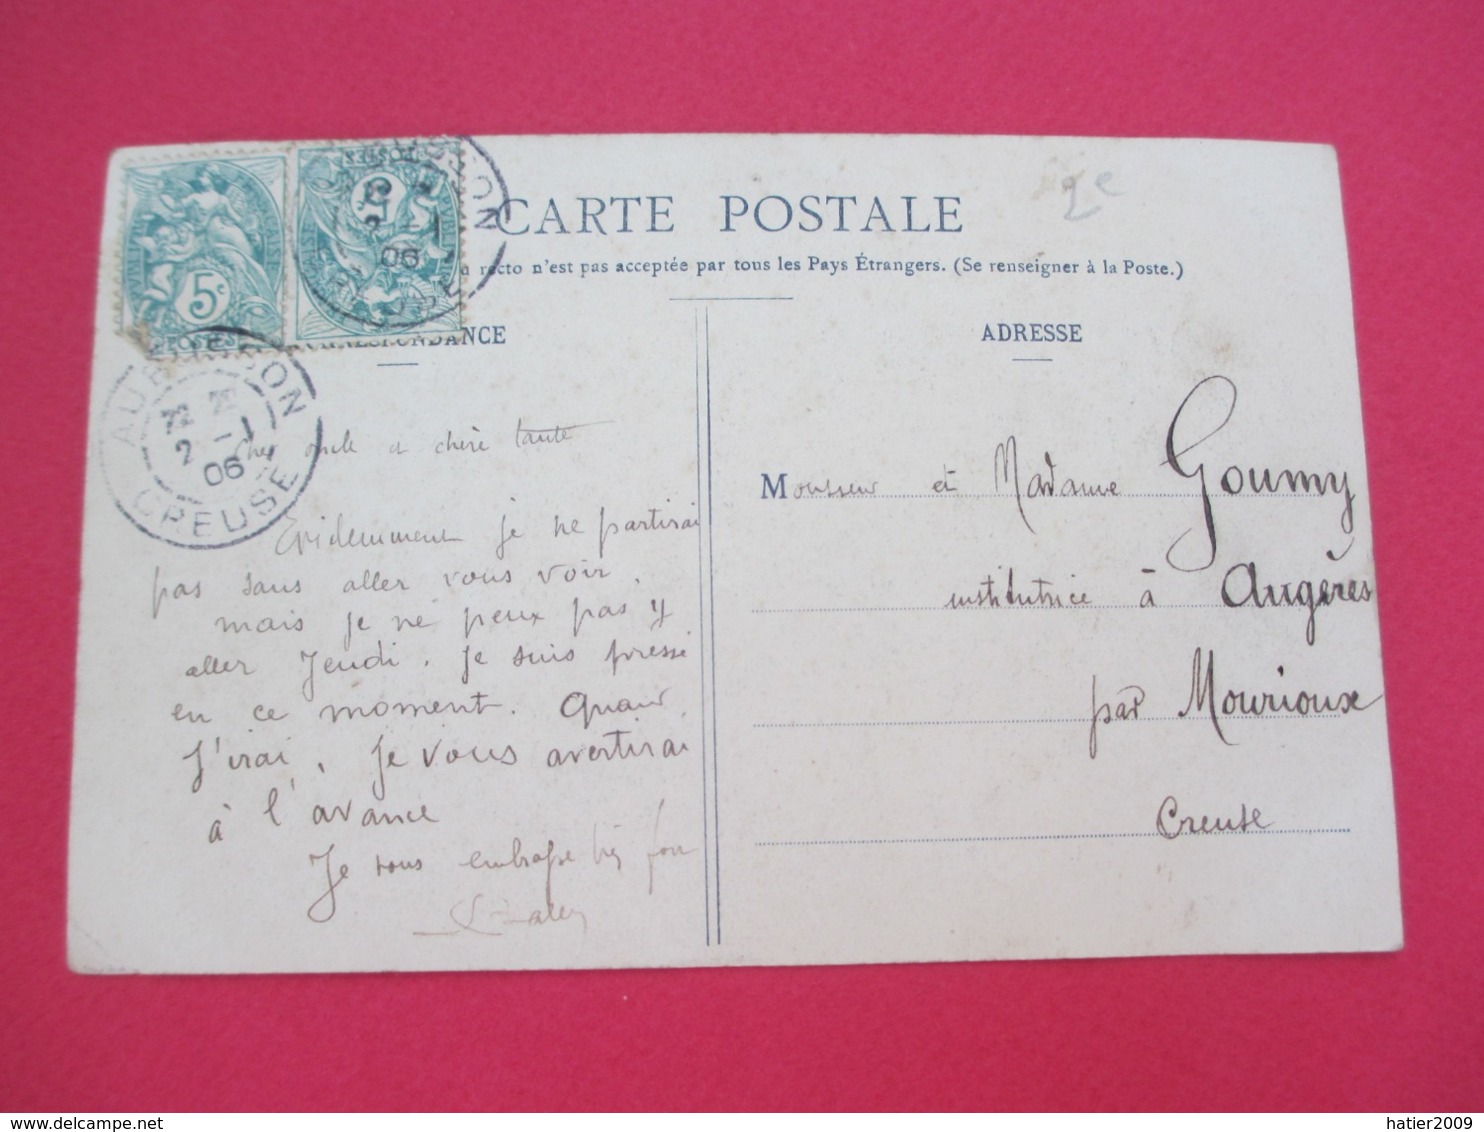 CARTE POSTALE
2e
recto n'est pas acceptée par tous les Pays Étrangers. (Se renseigner à la Poste.)
5c
POSTES
AUBUSSON
2 -1
06
CREUSE
2 -1
06
CORRESPONDANCE
Cher oncle et chère tante
Evidemment je ne partirai
pas sans aller vous voir,
mais je ne peux pas y
aller Jeudi. Je suis pressé
en ce moment. Quand
j'irai, je vous avertirai
à l'avance
Je vous embrasse bien fort
ADRESSE
Monsieur et Madame Goumy
institutrice à Augères
par Mourioux
Creuse
hatier2009